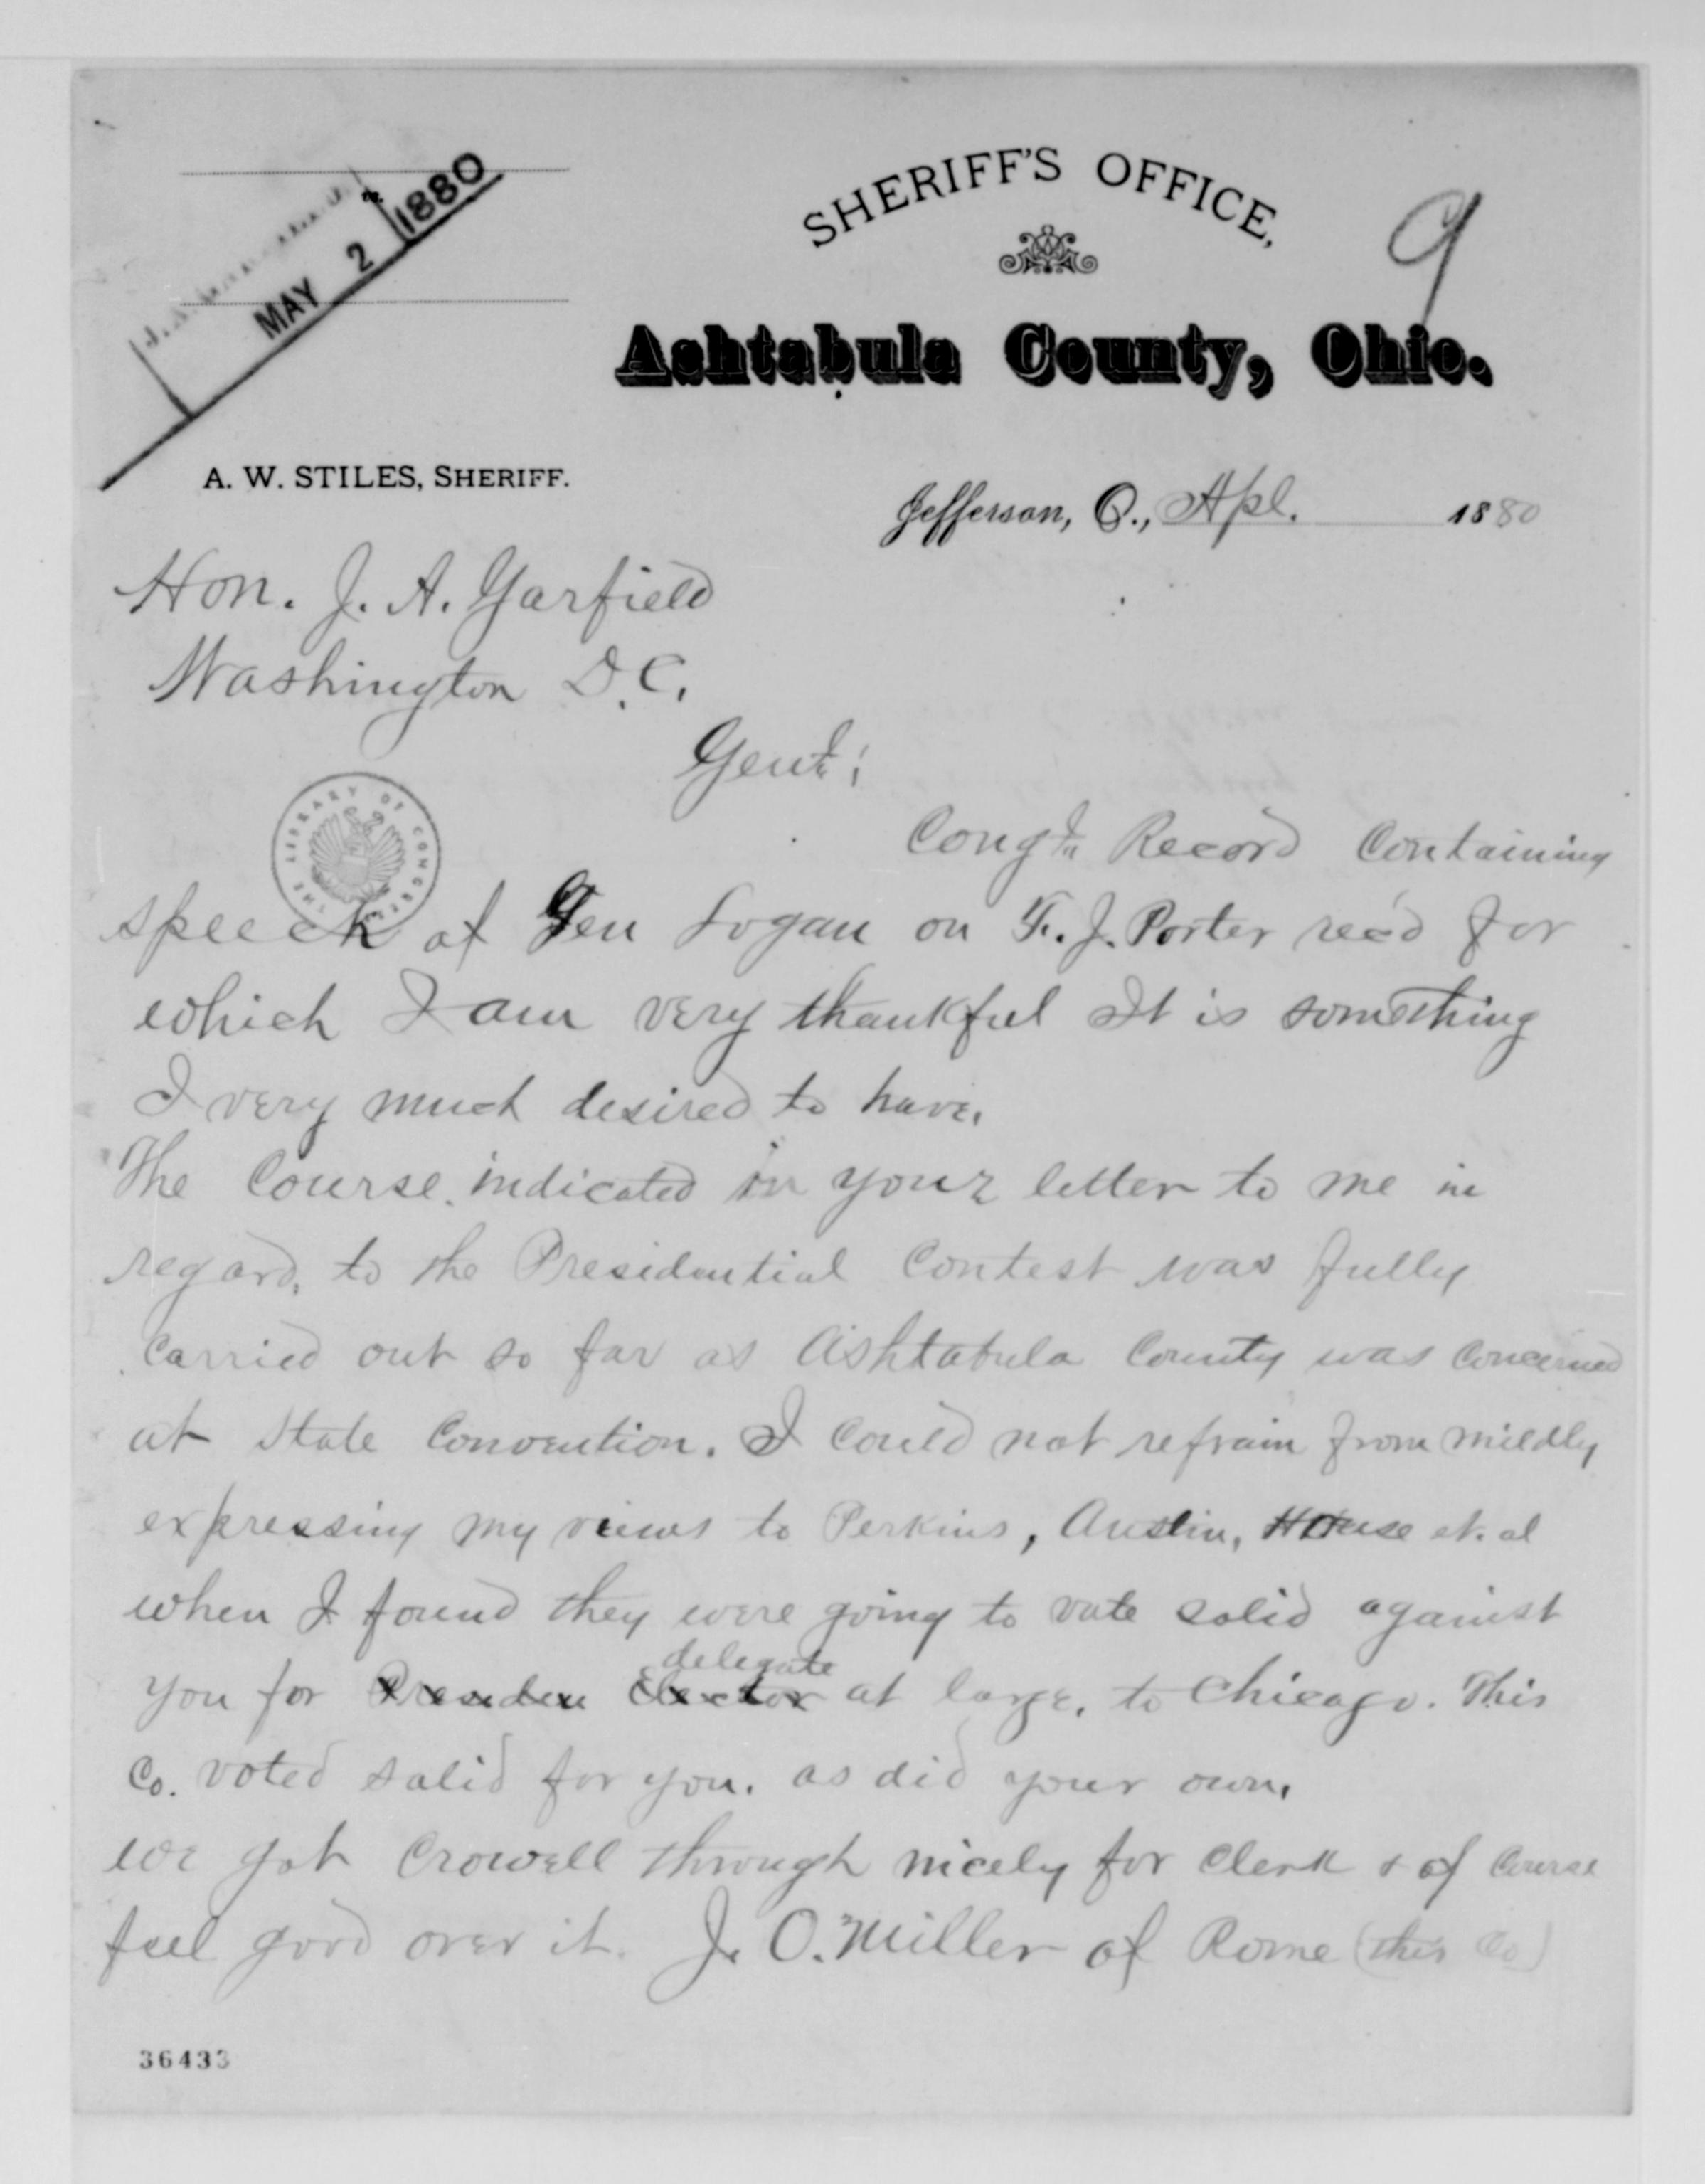 SHERIFF'S OFFICE,
9
Ashtabula County, Ohio.
MAY 2 1880
A. W. STILES, SHERIFF.
Jefferson, O., Apl. 1880
Hon. J. A. Garfield
Washington D.C.
Gent:
THE LIBRARY OF CONGRESS
Congl Record Containing
speech of Gen Logan on F. J. Porter rec'd for
which I am very thankful It is something
I very much desired to have.
The Course indicated in your letter to me in
regard, to the Presidential Contest was fully
carried out so far as Ashtabula County was concerned
at State Convention. I could not refrain from mildly
expressing my views to Perkins, Austin, House et. al
when I found they were going to vote solid against
delegate
you for Presiden Elector at large, to Chicago. This
Co. voted solid for you. as did your own.
we got Crowell through nicely for Clerk & of Course
feel good over it. J. O. Miller of Rome (this Co)
36433